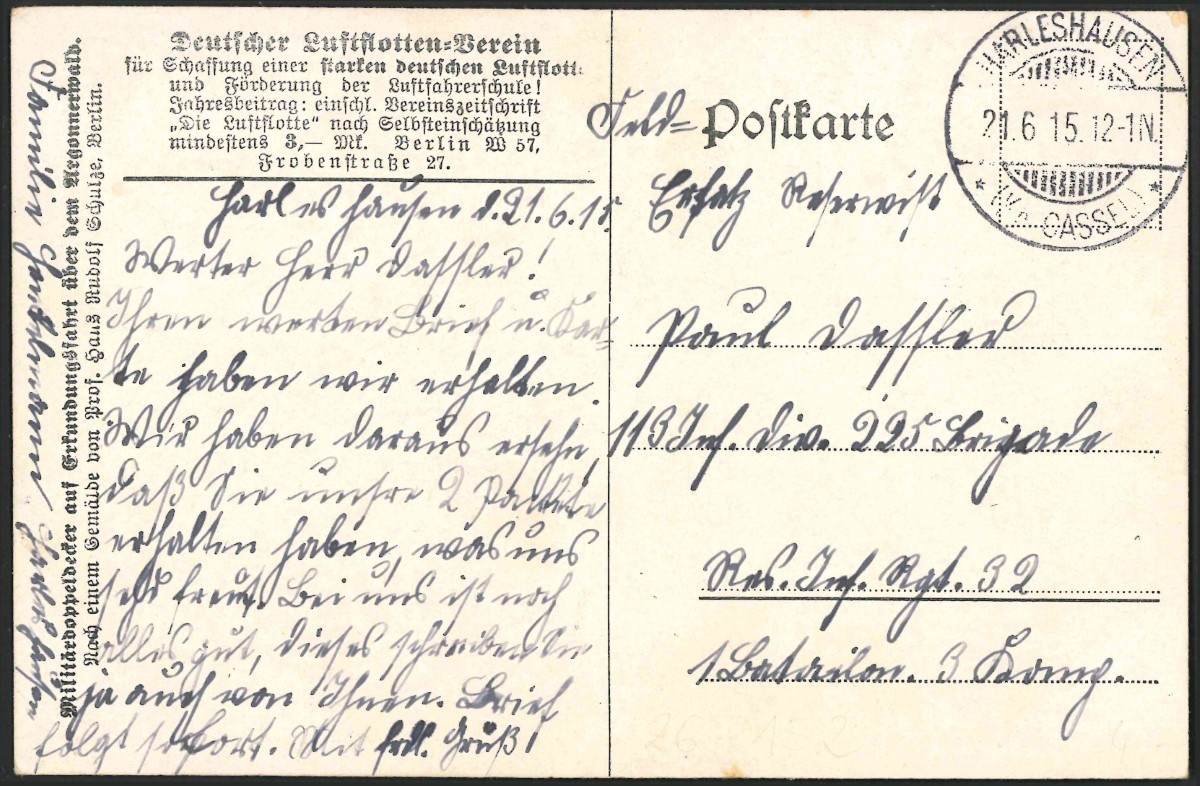 Deutscher Luftflotten-Verein
für Schaffung einer starken deutschen Luftflott
und Förderung der Luftfahrerschule!
Jahresbeitrag: einschl. Vereinszeitschrift
„Die Luftflotte“ nach Selbsteinschätzung
mindestens 3,— Mk. Berlin W 57,
Frobenstraße 27.
Harleshausen d. 21.6.15.
Werter Herr Dassler!
Ihren werten Brief u. Kar-
te haben wir erhalten.
Wir haben daraus ersehn,
daß Sie unsre 2 Packete
erhalten haben, was uns
sehr freut. Bei uns ist noch
alles gut, dieses schreiben Sie
ja auch von Ihnen. Brief
folgt sofort. Mit frdl. Gruß!
Familie
Harleshausen
Militärdoppeldecker auf Erkundungsfahrt über dem Argonnerwald.
Nach einem Gemälde von Prof. Hans Rudolf Schulze, Berlin.
Feld= Postkarte
HARLESHAUSEN
21.6 15.12-1N.
* (Kr. CASSEL) *
Ersatz Reservist
Paul Dassler
113 Inf. Div. 225 Brigade
Res. Inf. Rgt. 32
1 Batailon. 3 Komp.